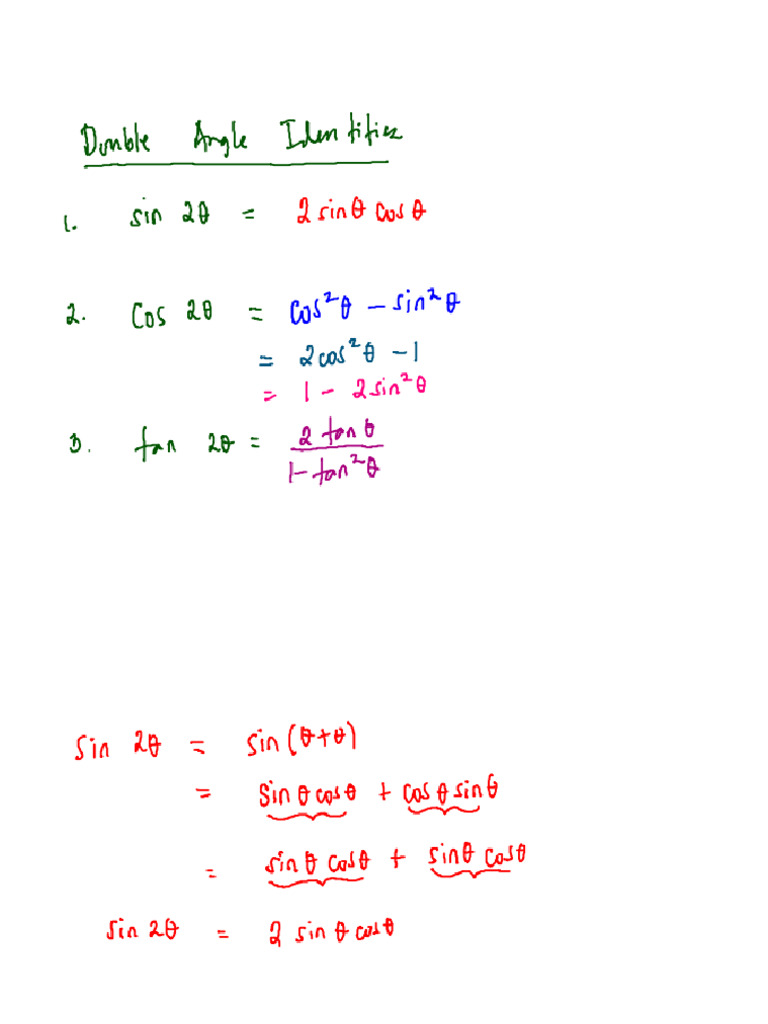 Double Angle Identities
1. sin 2θ = 2 sinθ cosθ
2. Cos 2θ = Cos²θ − sin²θ
= 2cos²θ − 1
= 1 − 2sin²θ
3. tan 2θ = 2 tanθ / 1 − tan²θ
sin 2θ = sin(θ+θ)
= sinθ cosθ + cosθ sinθ
= sinθ cosθ + sinθ cosθ
sin 2θ = 2 sinθ cosθ